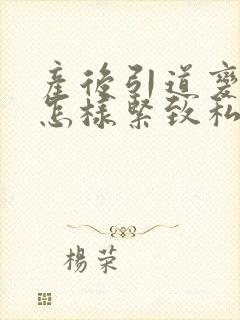 產後引道變
怎樣緊致私
楊荣